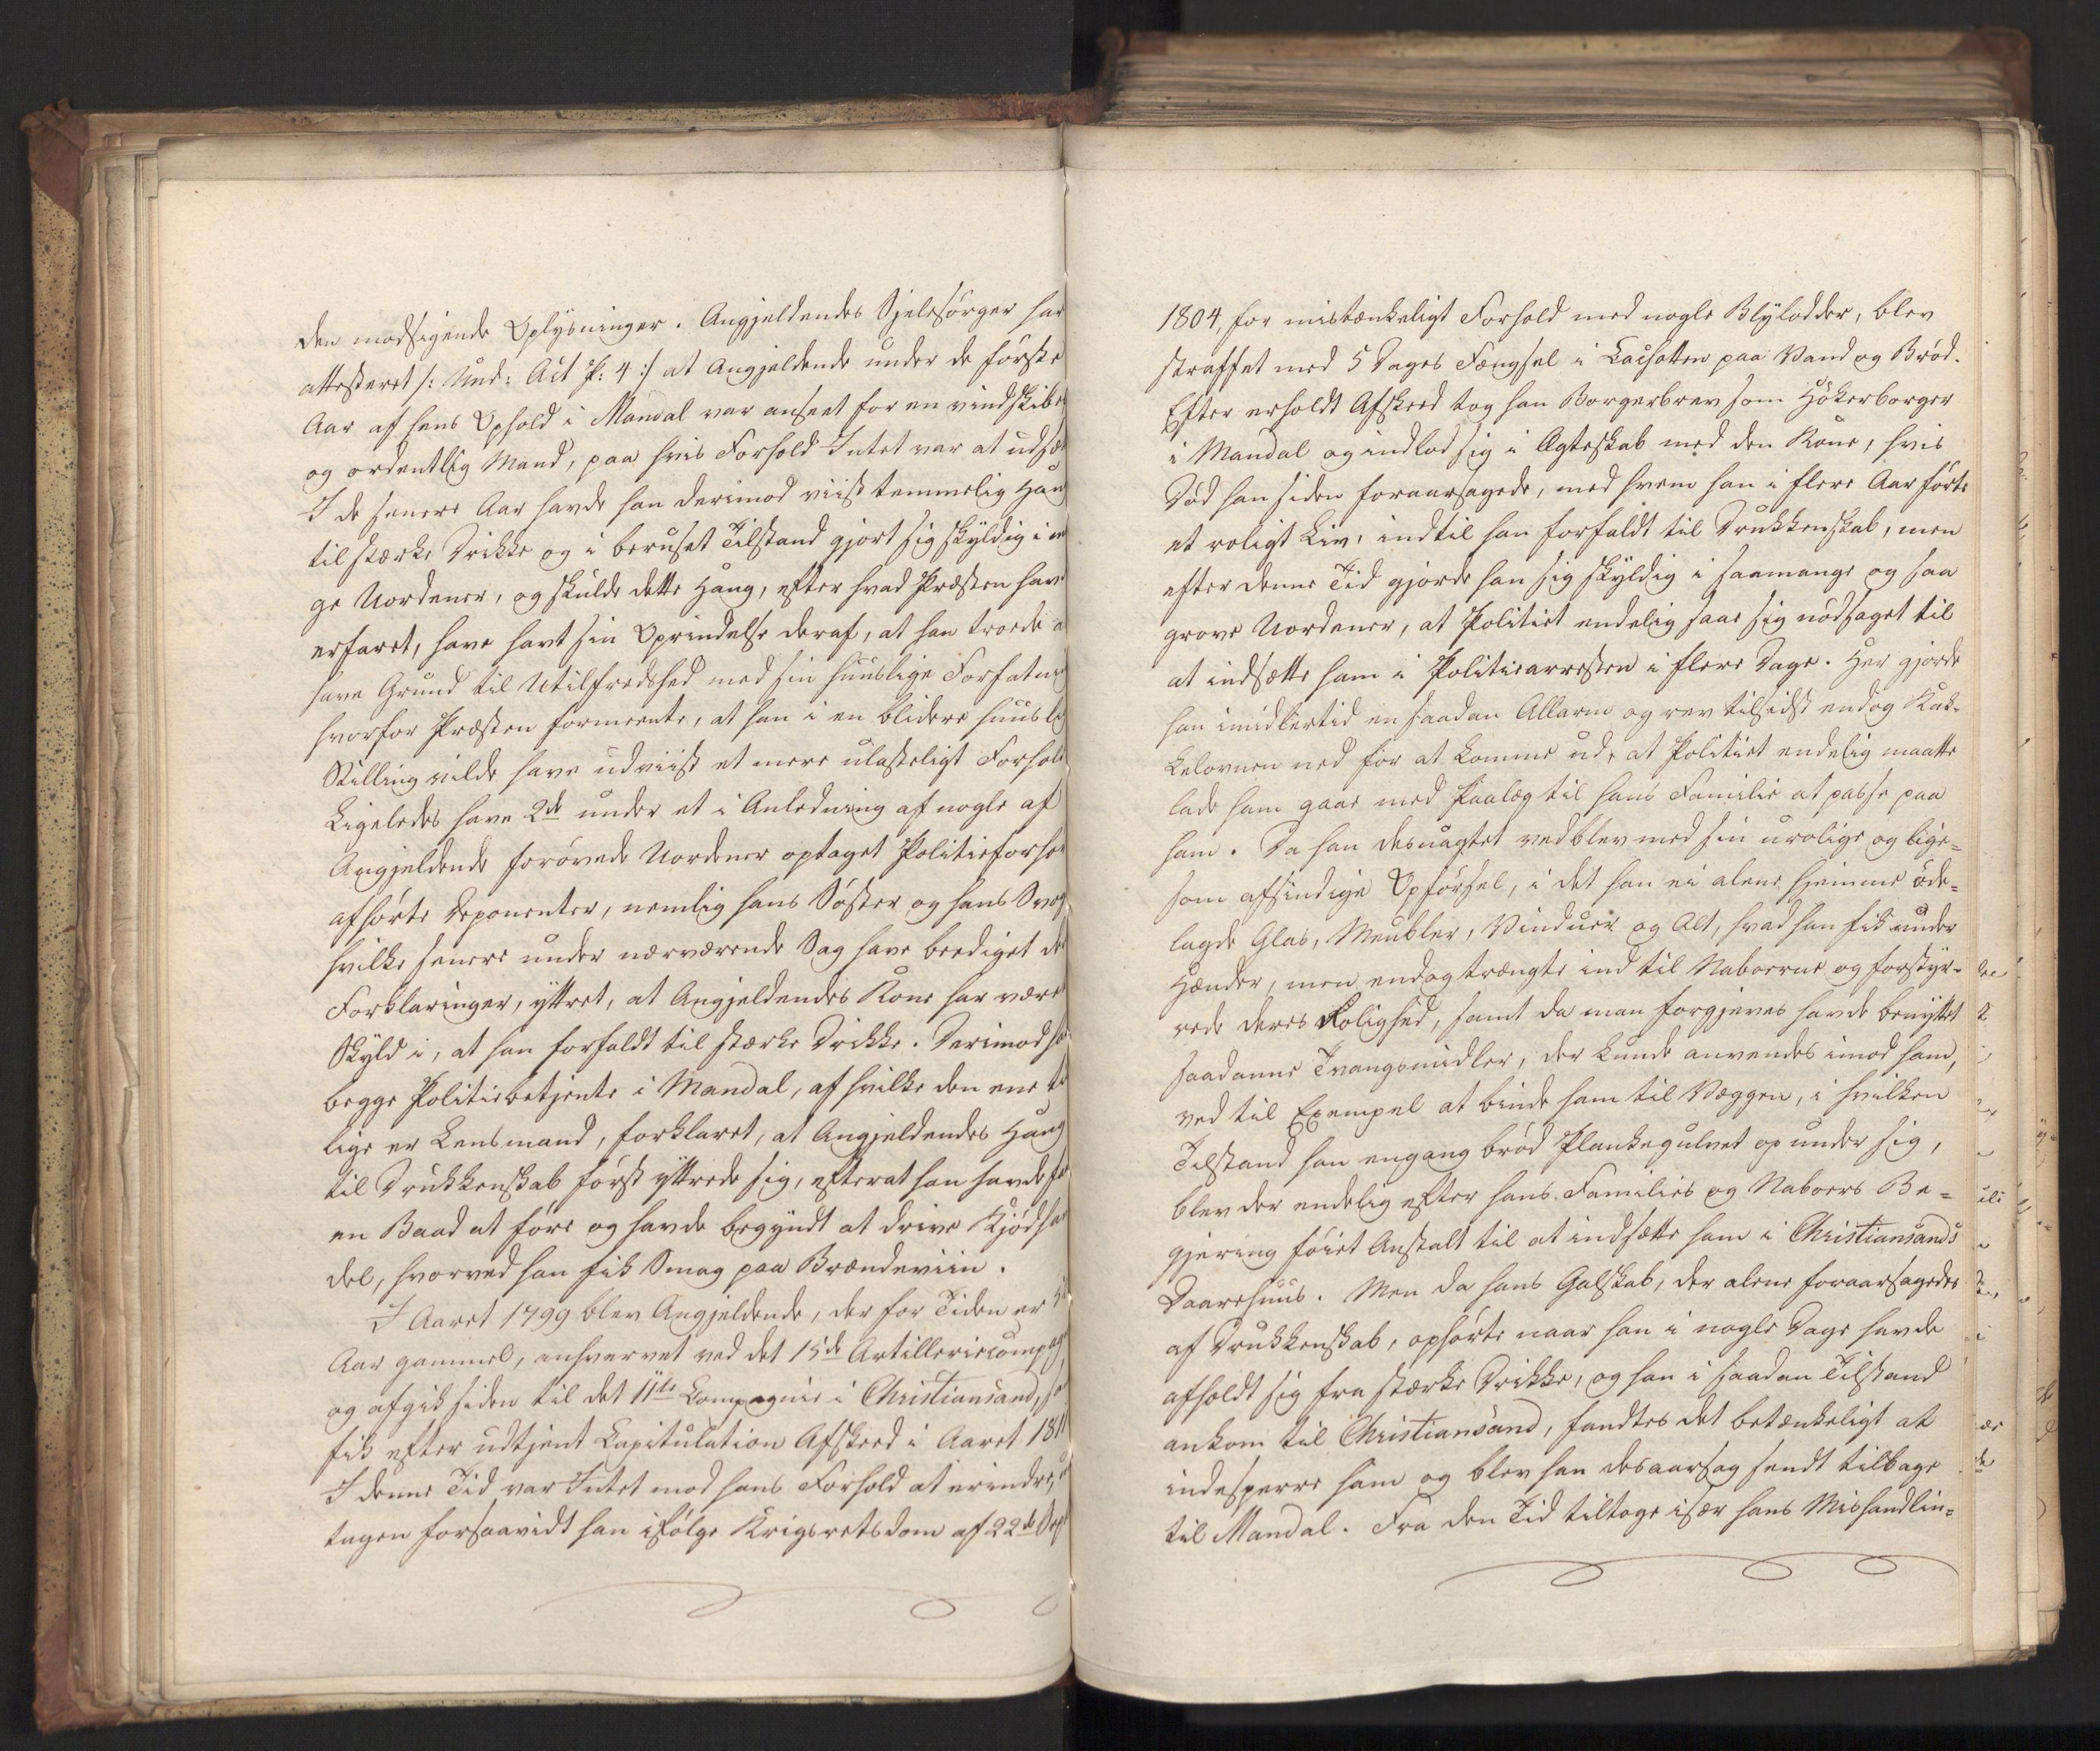 den modsigende Oplysninger. Angjeldendes Sjelesørger har
attesteret /: Und: Act P: 4 :/ at Angjeldende under de første
Aar af hans Ophold i Mandal var anseet for en vindskibe
og ordentlig Mand, paa hvis Forhold Intet var at udsæ
I de senere Aar havde han derimod viist temmelig Hang
til stærke Drikke og i beruset Tilstand gjort sig skyldig i
ge Uordener, og skulde dette Hang, efter hvad Præsten havd
erfaret, have havt sin Oprindelse deraf, at han troede a
have Grund til Utilfredshed med sin huuslige Forfatni
hvorfor Præsten formeente, at han i en blidere huuslig
Stilling vilde have udviist et mere ulasteligt Forhold
Ligeledes have 2de under et i Anledning af nogle af
Angjeldende forøvede Uordener optaget Politieforhør
afhørte Deponenter, nemlig hans Søster og hans Svog
hvilke senere under nærværende Sag have beediget de
Forklaringer, yttret, at Angjeldendes Kone har være
Skyld i, at han forfaldt til stærke Drikke. Derimod ha
begge Politiebetjente i Mandal, af hvilke den ene til
lige er Lensmand, forklaret, at Angjeldendes Hang
til Drukkenskab først yttrede sig, efterat han havde
en Baad at føre og havde begyndt at drive Kjødhan
del, hvorved han fik Smag paa Brændeviin.
I Aaret 1799 blev Angjeldende, der for Tiden er
Aar gammel, anhvervet ved det 15de Artilleriecompag
og afgik siden til det 11te Compagnie i Christiansand,
fik efter udtjent Capitulation Afskeed i Aaret 1811
I denne Tid var Intet mod hans Forhold at erindre,
tagen forsaavidt han ifølge Krigsretsdom af 22de Sept
1804, for mistænkeligt Forhold med nogle Blylodder, blev
straffet med 5 Dages Fængsel i Cachotten paa Vand og Brød.
Efter erholdt Afskeed tog han Borgerbrev som Høkerborger
i Mandal og indlod sig i Ægteskab med den Kone, hvis
Død han siden foraarsagede, med hvem han i flere Aar førte
et roligt Liv, indtil han forfaldt til Drukkenskab, men
efter denne Tid gjorde han sig skyldig i saamange og saa
grove Uordener, at Politiet endelig saae sig nødsaget til
at indsætte ham i Politiearresten i flere Dage. Her gjorde
han imidlertid en saadan Allarm og rev tilsidst endog Kak-
kelovnen ned for at komme ud, at Politiet endelig maatte
lade ham gaae med Paalæg til hans Familie at passe paa
ham. Da han desuagtet vedblev med sin urolige og lige=
som afsindige Opførsel, i det han ei alene hjemme øde=
lagde Glas, Meubler, Vinduer og Alt, hvad han fik under
Hænder, men endog trængte ind til Naboerne og forstyr-
rede deres Rolighed, samt da man forgjeves havde benyttet
saadanne Tvangsmidler, der kunde anvendes imod ham,
ved til Exempel at binde ham til Væggen, i hvilken
Tilstand han engang brød Plankegulvet op under sig,
blev der endelig efter hans Families og Naboers Be=
gjering føiet Anstalt til at indsætte ham i Christiansands
Daarehuus. Men da hans Galskab, der alene foraarsagedes
af Drukkenskab, ophørte naar han i nogle Dage havde
afholdt sig fra stærke Drikke, og han i saadan Tilstand
ankom til Christiansand, fandtes det betænkeligt at
indesperre ham og blev han desaarsag sendt tilbage
til Mandal. Fra den Tid tiltoge især hans Mishandlin=